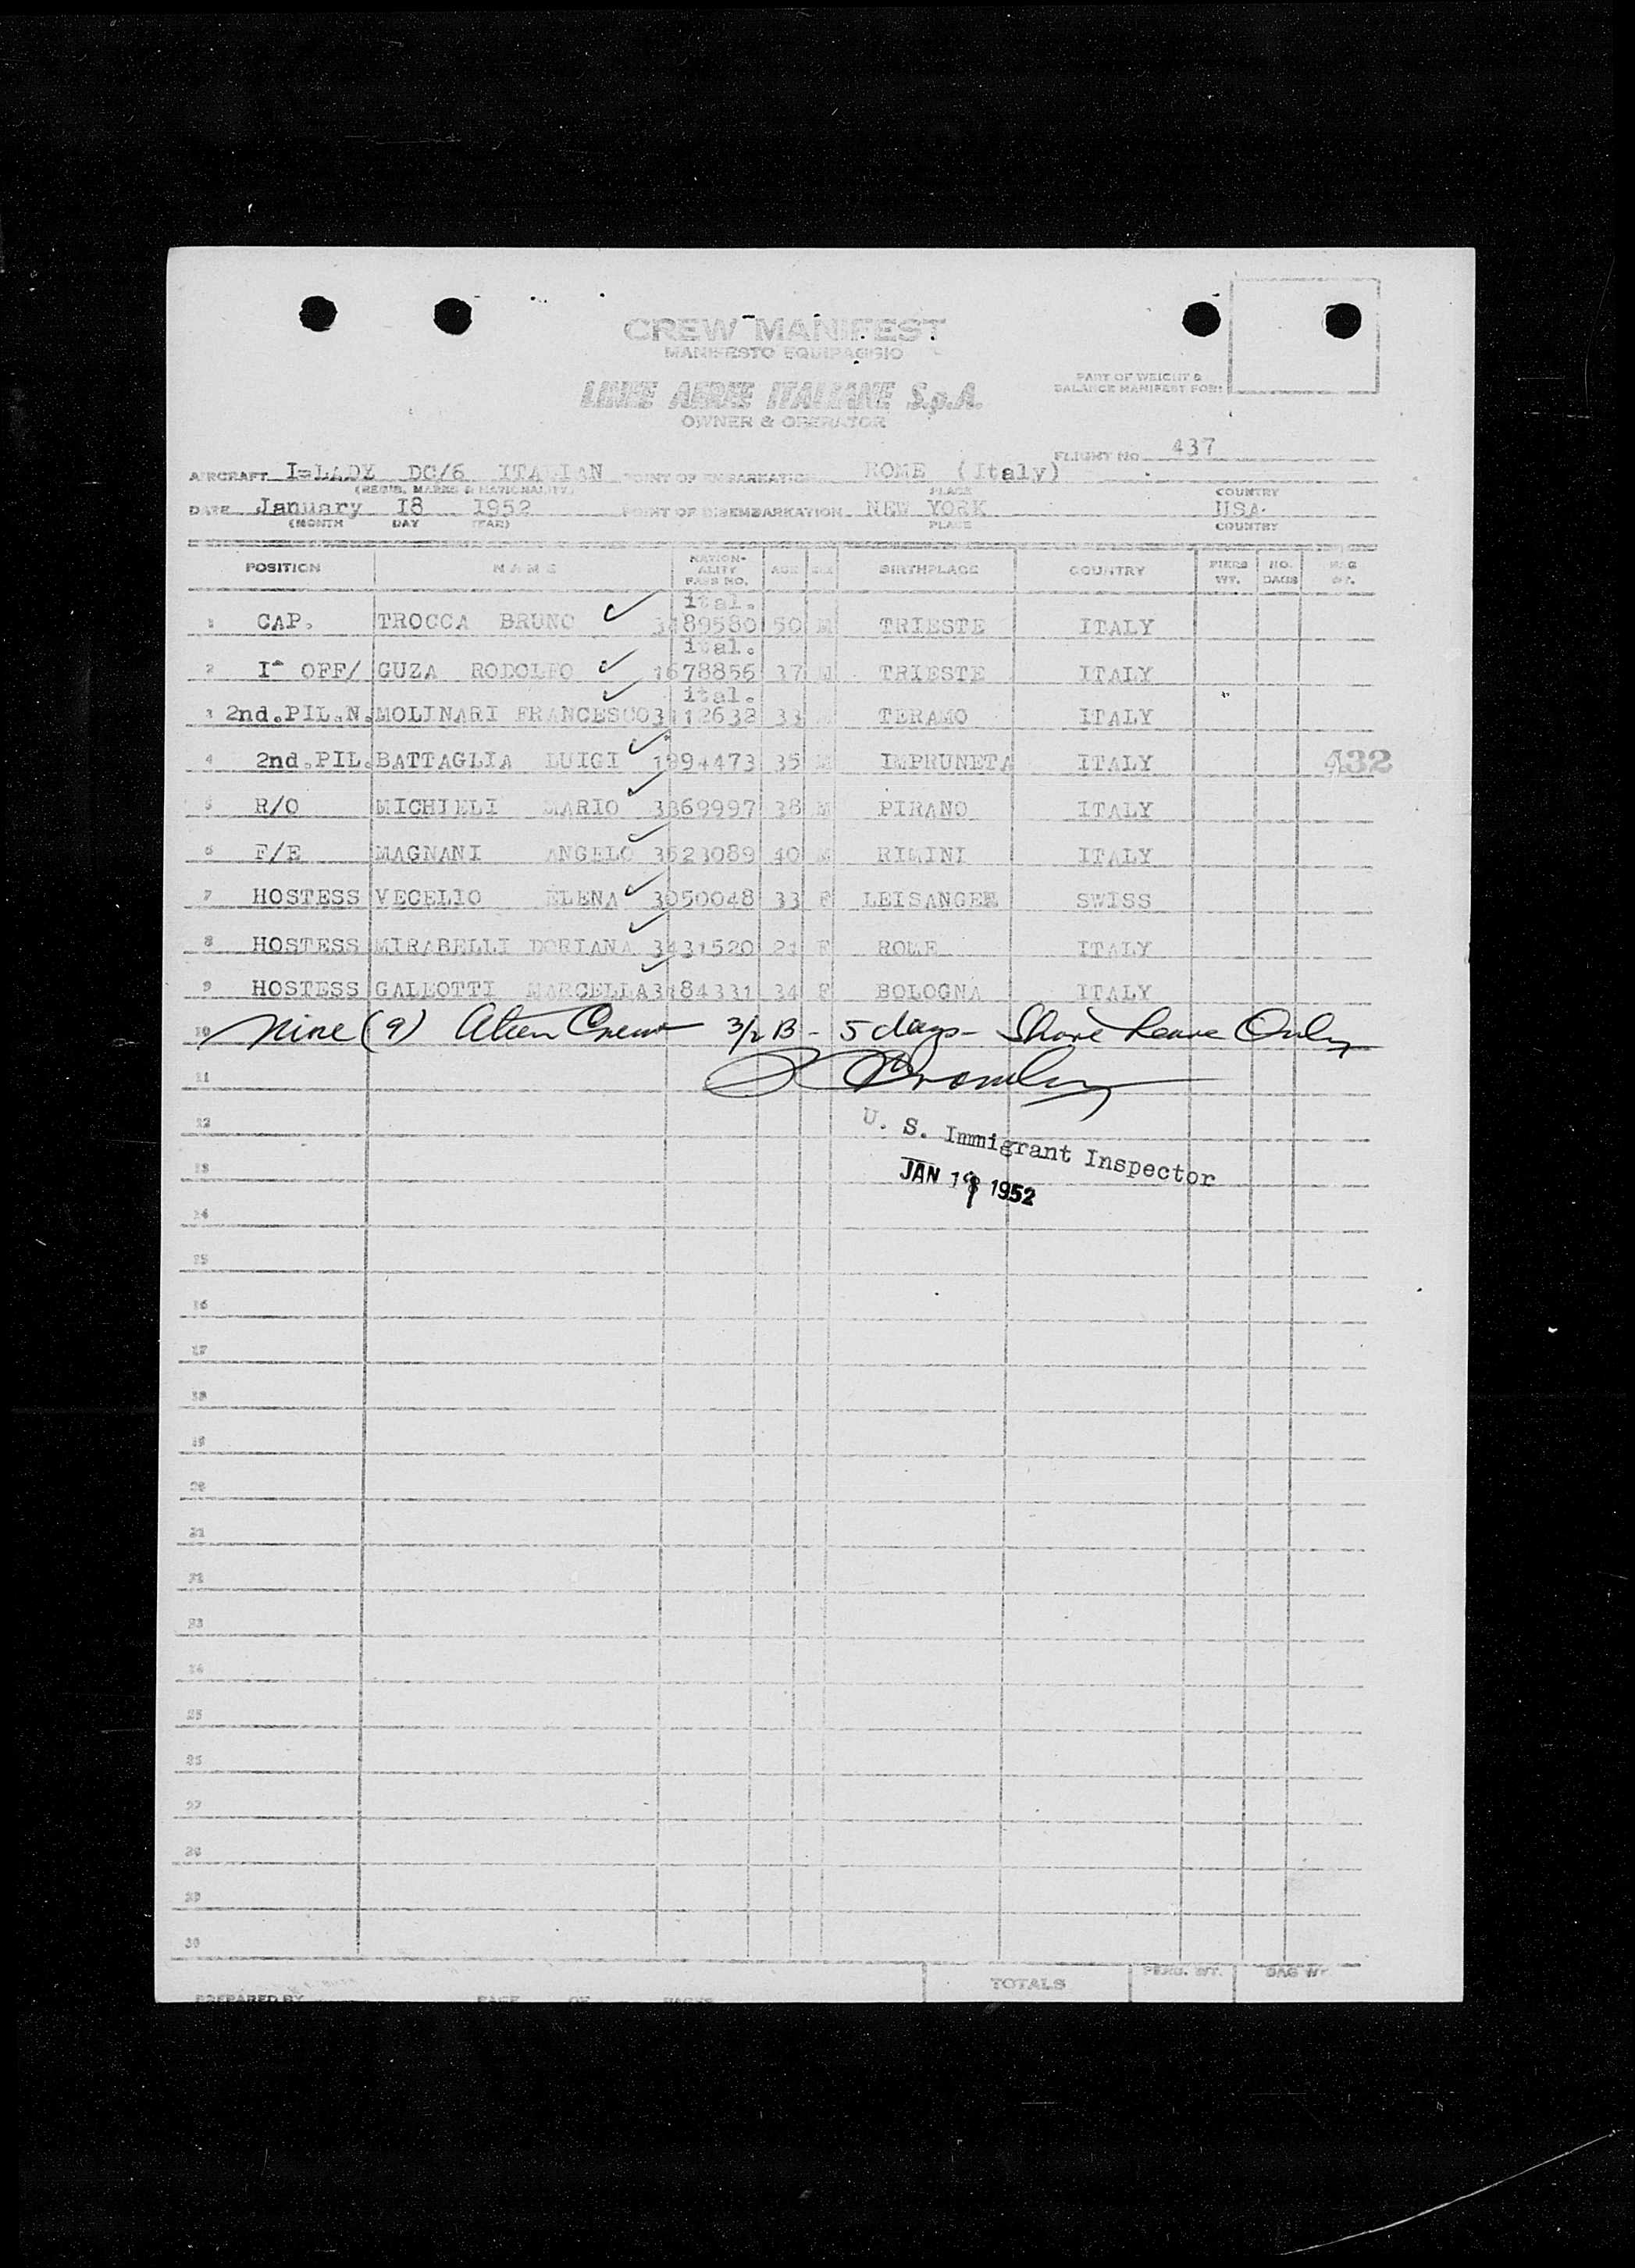 CREW MANIFEST
MANIFESTO EQUIPAGGIO
PART OF WEIGHT &
BALANCE MANIFEST FOR:
LINEE AEREE ITALIANE S.p.A.
OWNER & OPERATOR
FLIGHT No 437
AIRCRAFT I=LADY DC/6 ITALIAN POINT OF EMBARKATION ROME (Italy)
(REGIS. MARKS & NATIONALITY) PLACE COUNTRY
DATE January 18 1952 POINT OF DISEMBARKATION NEW YORK USA.
(MONTH DAY YEAR) PLACE COUNTRY
POSITION NAME NATION-ALITY PASS NO. AGE SEX BIRTHPLACE COUNTRY PIERS WT. NO. BAGS BAG WT.
ital.
1 CAP. TROCCA BRUNO 3489580 50 M TRIESTE ITALY
ital.
2 I^ OFF/ GUZA RODOLFO 1678856 37 M TRIESTE ITALY
ital.
3 2nd.PIL.N. MOLINARI FRANCESCO 3112632 33 M TERAMO ITALY
4 2nd.PIL. BATTAGLIA LUIGI 1894473 35 M IMPRUNETA ITALY 432
5 R/O MICHIELI MARIO 3869997 38 M PIRANO ITALY
6 F/E MAGNANI ANGELO 3523089 40 M RIMINI ITALY
7 HOSTESS VECELIO ELENA 3050048 33 F LEISANGEN SWISS
8 HOSTESS MIRABELLI DORIANA 3431520 21 F ROME ITALY
9 HOSTESS GALEOTTI MARCELLA 3184331 34 F BOLOGNA ITALY
10 Nine (9) Alien Crew 3/2 B - 5 days - Shore Leave Only
11
12 U. S. Immigrant Inspector
13 JAN 18 1952
14
15
16
17
18
19
20
21
22
23
24
25
26
27
28
29
30
TOTALS PERS. WT. BAG WT
PREPARED BY PAGE OF PAGES